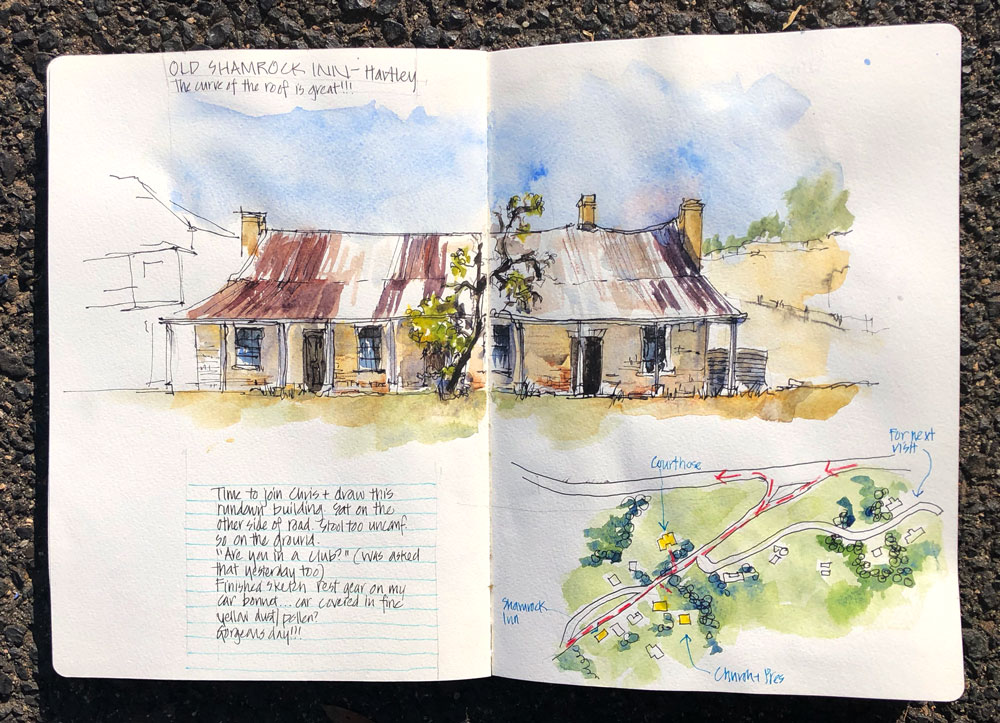 OLD SHAMROCK INN - Hartley
The curve of the roof is great!!!
Time to join Chris + draw this
rundown building. Sat on the
other side of road. Stool too uncomf.
so on the ground.
"Are you in a club?" (was asked
that yesterday too)
Finished sketch rest gear on my
car bonnet... car covered in fine
yellow dust/pollen?
Gorgeous day!!!
For next
visit
Courthose
Shamrock
Inn
Church + Pres